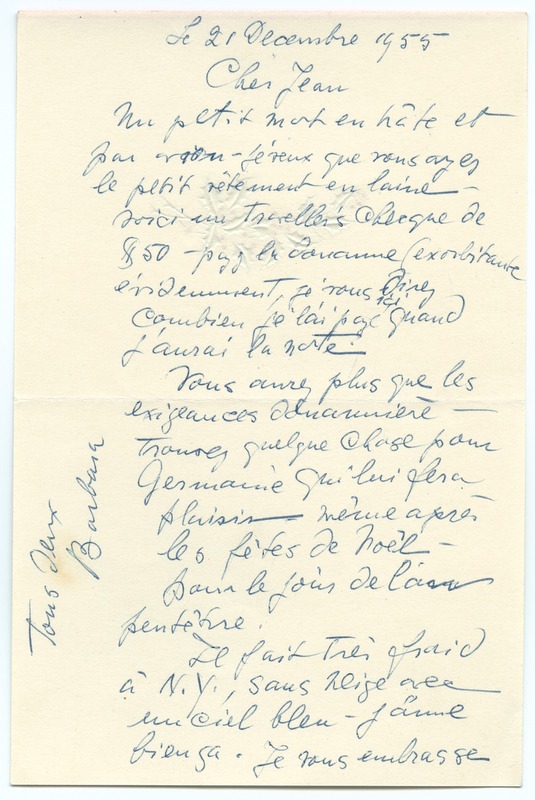 Le 21 Decembre 1955
Cher Jean
Un petit mot en hâte et
par avion - je veux que vous ayez
le petit vêtement en laine -
voici un Traveller's Checque de
$50 - payez la douanne (exorbitante
évidemment, je vous direz
combien je l'ai payé ici quand
j'aurai la note.
Vous aurez plus que les
exigeances douannière -
trouvez quelque chose pour
Germaine qui lui fera
plaisir - même après
les fêtes de Noël -
pour le jour de l'an
peutêtre.
Il fait très froid
à N.Y., sans neige avec
un ciel bleu - j'aime
bien ça. Je vous embrasse
Tous deux
Barbara